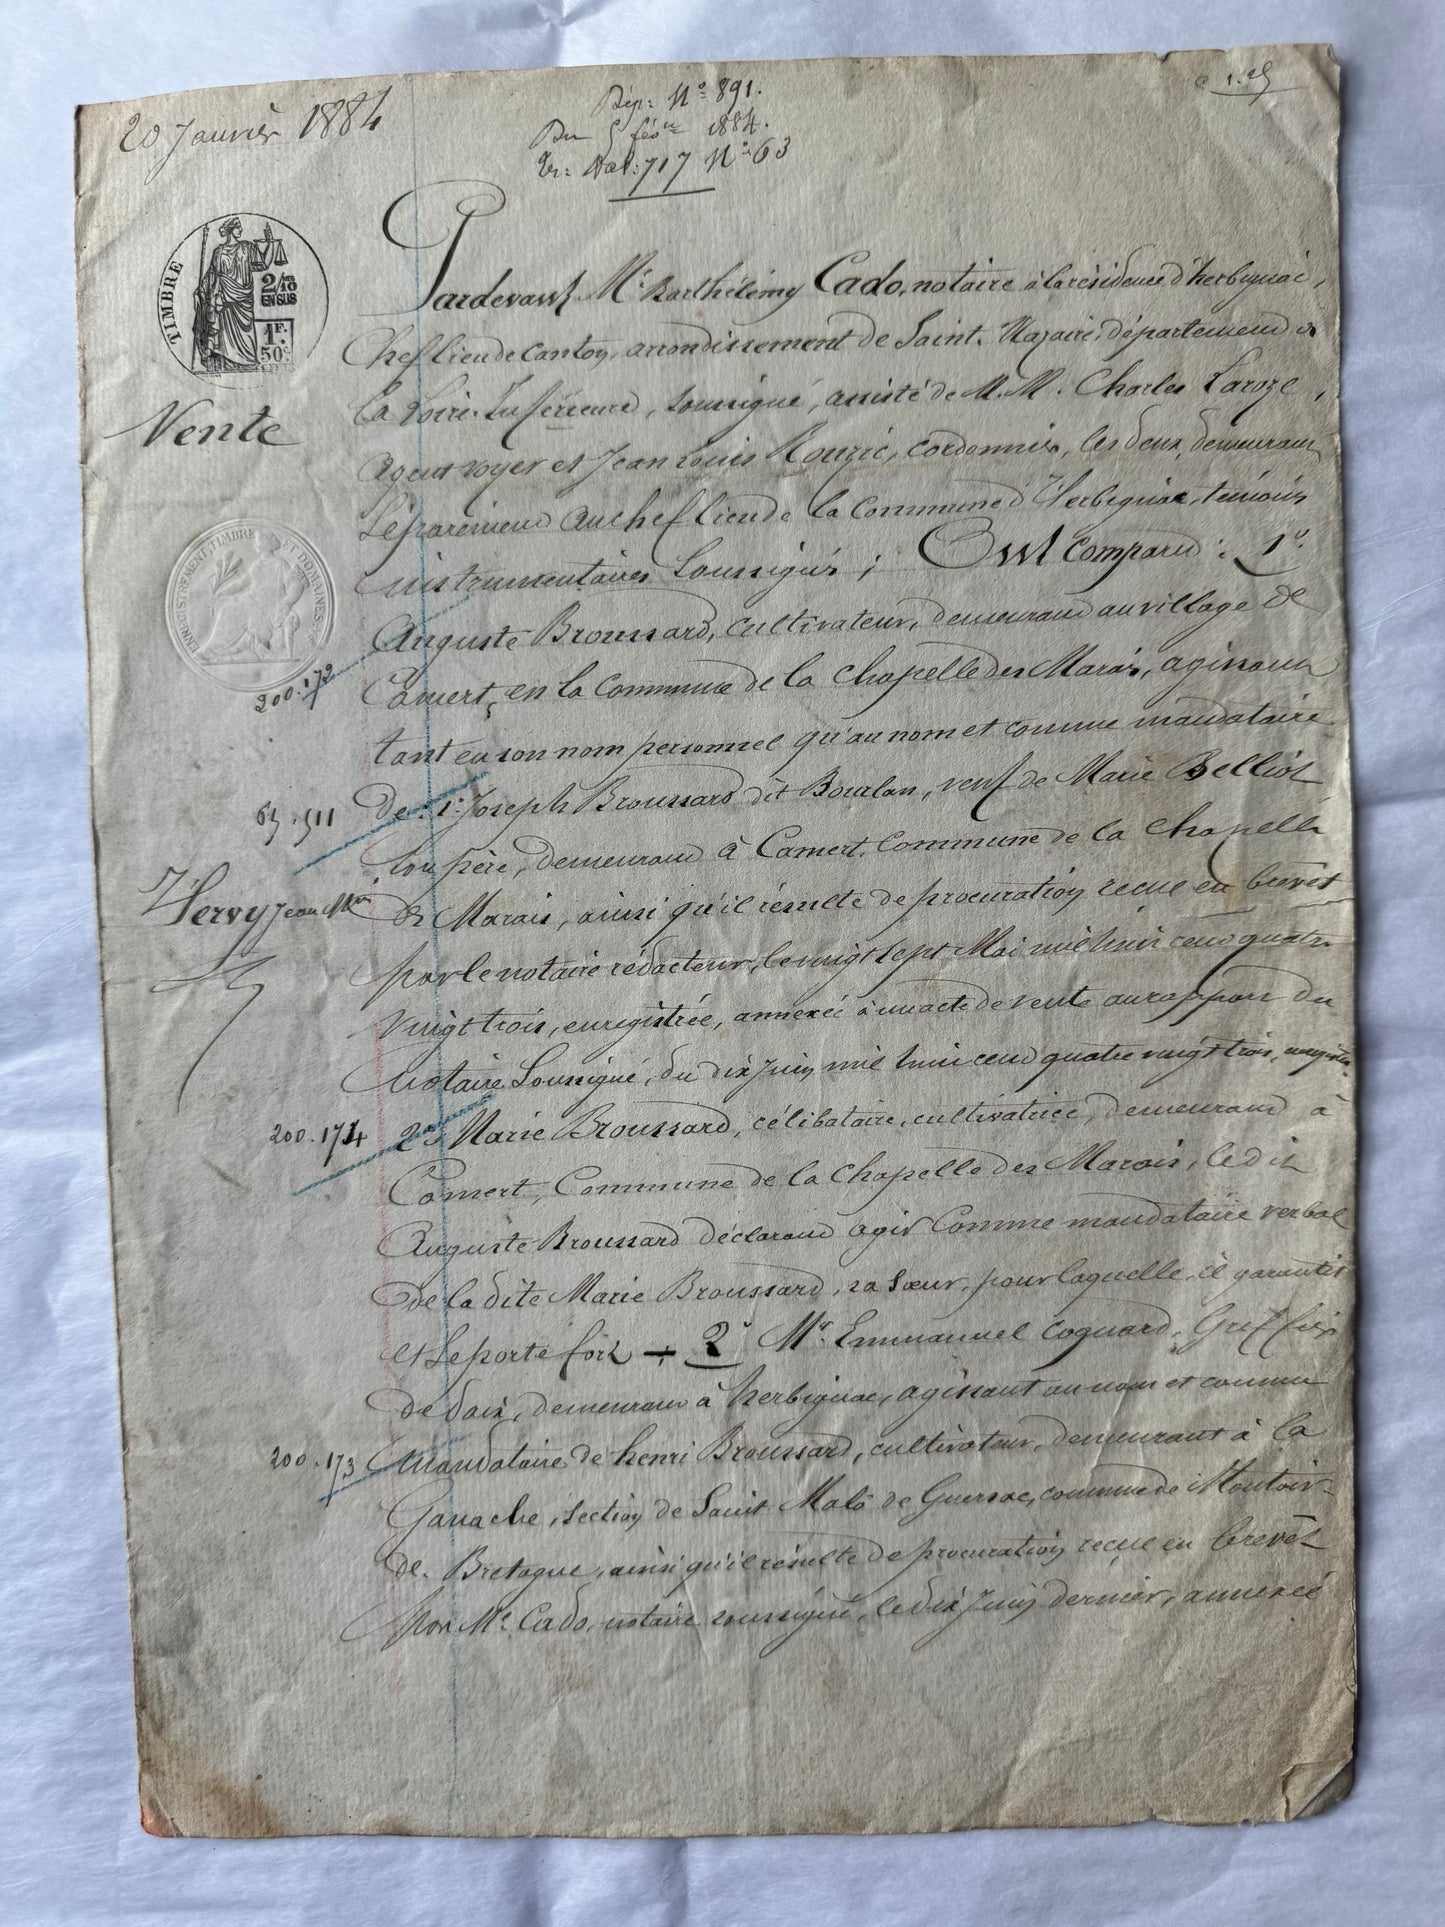 20 Janvier 1884
Dép: N° 891.
Du 5 fév 1884.
Vol: 717 N° 63
1.25
TIMBRE
2/10 EN SUS
1F. 50c
Vente
ENREGISTREMENT TIMBRE ET DOMAINES
Pardevant Me Barthélémy Cado, notaire à la résidence d'herbignac,
Chef lieu de Canton, arrondissement de Saint-Nazaire, département de
la Loire-Inférieure, soussigné, assisté de M.M. Charles Laroze,
agent voyer et Jean Louis Rouzic, cordonnier, les deux demeurant
séparément au chef lieu de la Commune d'Herbignac, témoins
instrumentaires soussignés; Ont Comparu: 1°.
Auguste Broussard, cultivateur, demeurant au village de
200.172
Camert, en la Commune de la Chapelle des Marais, agissant
tant en son nom personnel qu'au nom et comme mandataire
de: 1° Joseph Broussard dit Bourlan, veuf de Marie Belliot
65.511
son père, demeurant à Camert, Commune de la Chapelle
Hervy Jean Mie
des Marais, ainsi qu'il résulte de procuration reçue en brevet
par le notaire rédacteur, le vingt sept Mai mil huit cent quatre
vingt trois, enregistrée, annexée à un acte de vente au rapport du
Notaire soussigné, du dix Juin mil huit cent quatre vingt trois, enregistré.
200.174
2° Marie Broussard, célibataire, cultivatrice, demeurant à
Camert, Commune de la Chapelle des Marais, le dit
Auguste Broussard déclarant agir Comme mandataire verbal
de la dite Marie Broussard, sa sœur, pour laquelle il garantit
et se porte fort ÷ 2° Mr. Emmanuel Coguard, Greffier
de Paix, demeurant à herbignac, agissant au nom et comme
200.173
mandataire de henri Broussard, cultivateur, demeurant à la
Ganache, section de Saint Malo de Guersac, commune de Montoir-
de-Bretagne, ainsi qu'il résulte de procuration reçue en brevet
par Me Cado, notaire soussigné, le dix Juin dernier, annexée